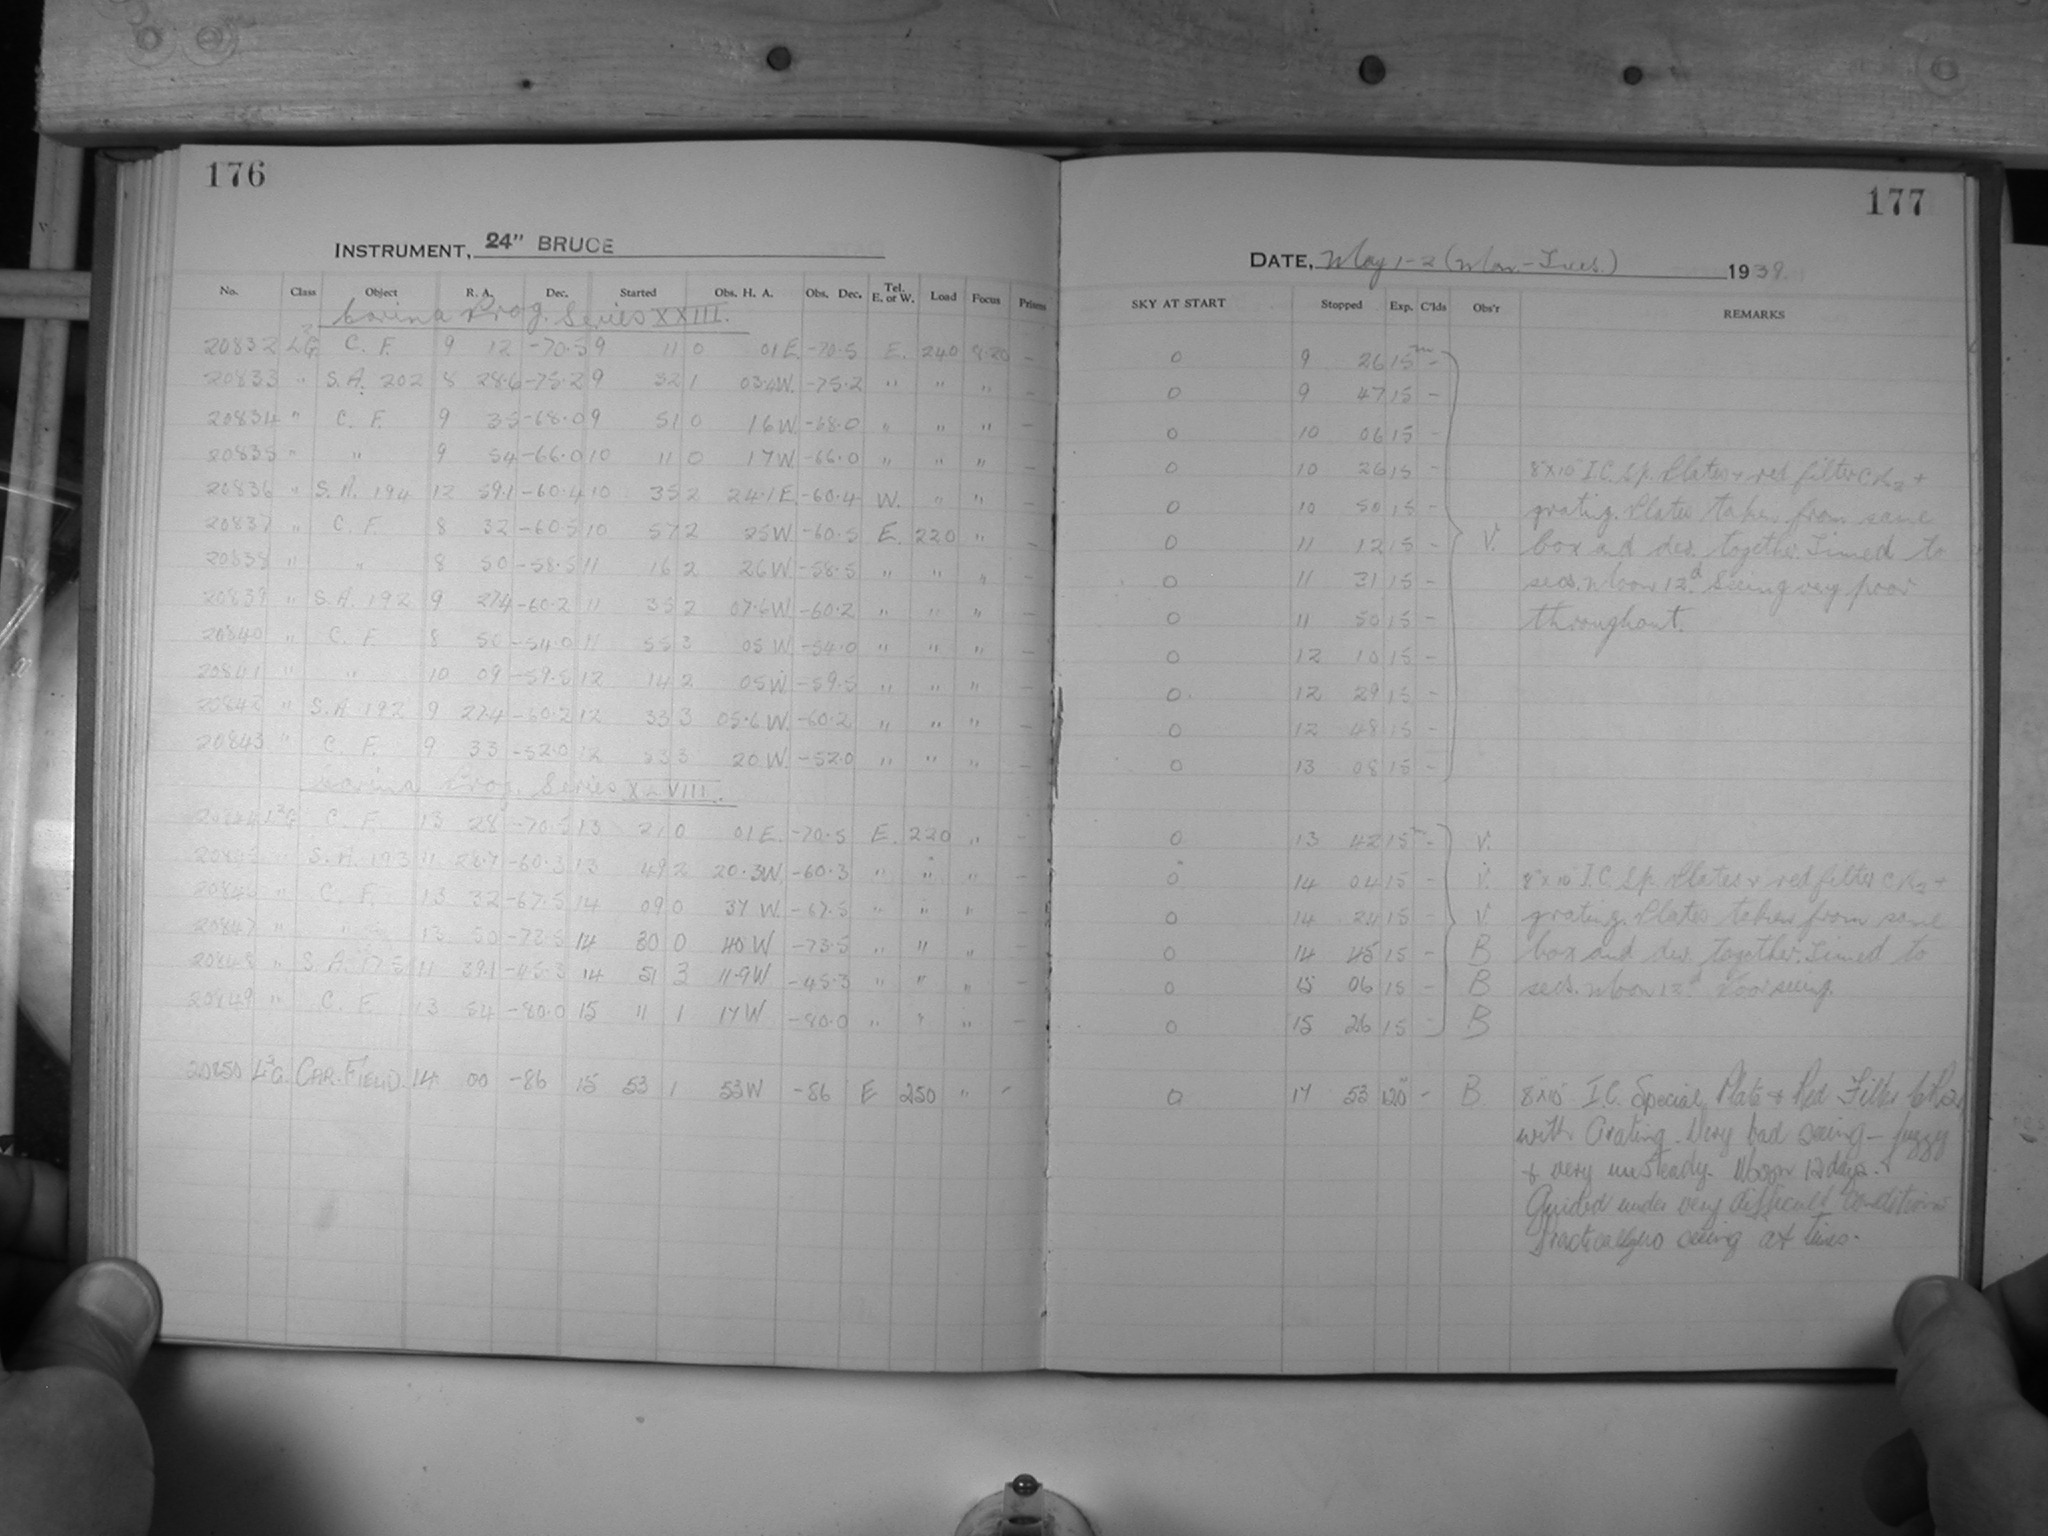 176
INSTRUMENT, 24" BRUCE
No. Class Object R. A. Dec. Started Obs. H. A. Obs. Dec. Tel. E. or W. Load Focus Prisms
Carina Prog. Series XXIII.
20832 C. F. 9 12 -70.5 9 11 0 01 E. -70.5 E. 240 8.20 -
20833 " S.A. 202 8 28.6 -75.2 9 32 1 03.4W. -75.2 " " " -
20834 " C. F. 9 35 -68.0 9 51 0 16 W. -68.0 " " " -
20835 " " 9 54 -66.0 10 11 0 17 W. -66.0 " " " -
20836 " S.A. 194 12 59.1 -60.4 10 35 2 24.1 E. -60.4 W. " " -
20837 " C. F. 8 32 -60.5 10 57 2 25 W. -60.5 E. 220 " -
20838 " " 8 50 -58.5 11 16 2 26 W. -58.5 " " " -
20839 " S.A. 192 9 27.4 -60.2 11 35 2 07.6W. -60.2 " " " -
20840 " C. F. 8 50 -54.0 11 55 3 05 W. -54.0 " " " -
20841 " " 10 09 -59.5 12 14 2 05 W. -59.5 " " " -
20842 " S.A. 192 9 27.4 -60.2 12 33 3 05.6 W. -60.2 " " " -
20843 " C. F. 9 33 -52.0 12 53 3 20 W. -52.0 " " " -
Carina Prog. Series XLVIII.
20844 L3G C. F. 13 28 -70.5 13 27 0 01 E. -70.5 E. 220 " -
20845 " S.A. 193 11 28.7 -60.3 13 49 2 20.3W. -60.3 " " " -
20846 " C. F. 13 32 -67.5 14 09 0 37 W. -67.5 " " " -
20847 " " 13 50 -73.5 14 30 0 40 W -73.5 " " " -
20848 " S.A. 175 11 39.1 -45.3 14 51 3 11.9W -45.3 " " " -
20849 " C. F. 13 54 -80.0 15 11 1 17 W -80.0 " " " -
20850 L3G. CAR. FIELD 14 00 -86 15 53 1 53 W -86 E 250 " -
177
DATE, May 1-2 (Mon.-Tues.) 1939.
SKY AT START Stopped Exp. C'lds Obs'r REMARKS
0 9 26 15m -
0 9 47 15 -
0 10 06 15 -
0 10 26 15 - 8"x10" I.C. Sp. Plates + red filter CR2 +
0 10 50 15 - grating. Plates taken from same
0 11 12 15 - V. box and dev. together. Timed to
0 11 31 15 - secs. Moon 12d. Seeing very poor
0 11 50 15 - throughout.
0 12 10 15 -
0 12 29 15 -
0 12 48 15 -
0 13 08 15 -
0 13 42 15m - V.
0 14 04 15 - V. 8"x10" I.C. Sp. Plates + red filter CR2 +
0 14 24 15 - V grating. Plates taken from same
0 14 45 15 - B box and dev. together. Timed to
0 15 06 15 - B secs. Moon 12d. Poor seeing.
0 15 26 15 - B
0 17 53 120m - B. 8"x10" I.C. Special Plate + Red Filter CR2,
with Grating. Very bad seeing - fuzzy
+ very unsteady. Moon 12 days.
Guided under very difficult conditions
Practically zero seeing at times.